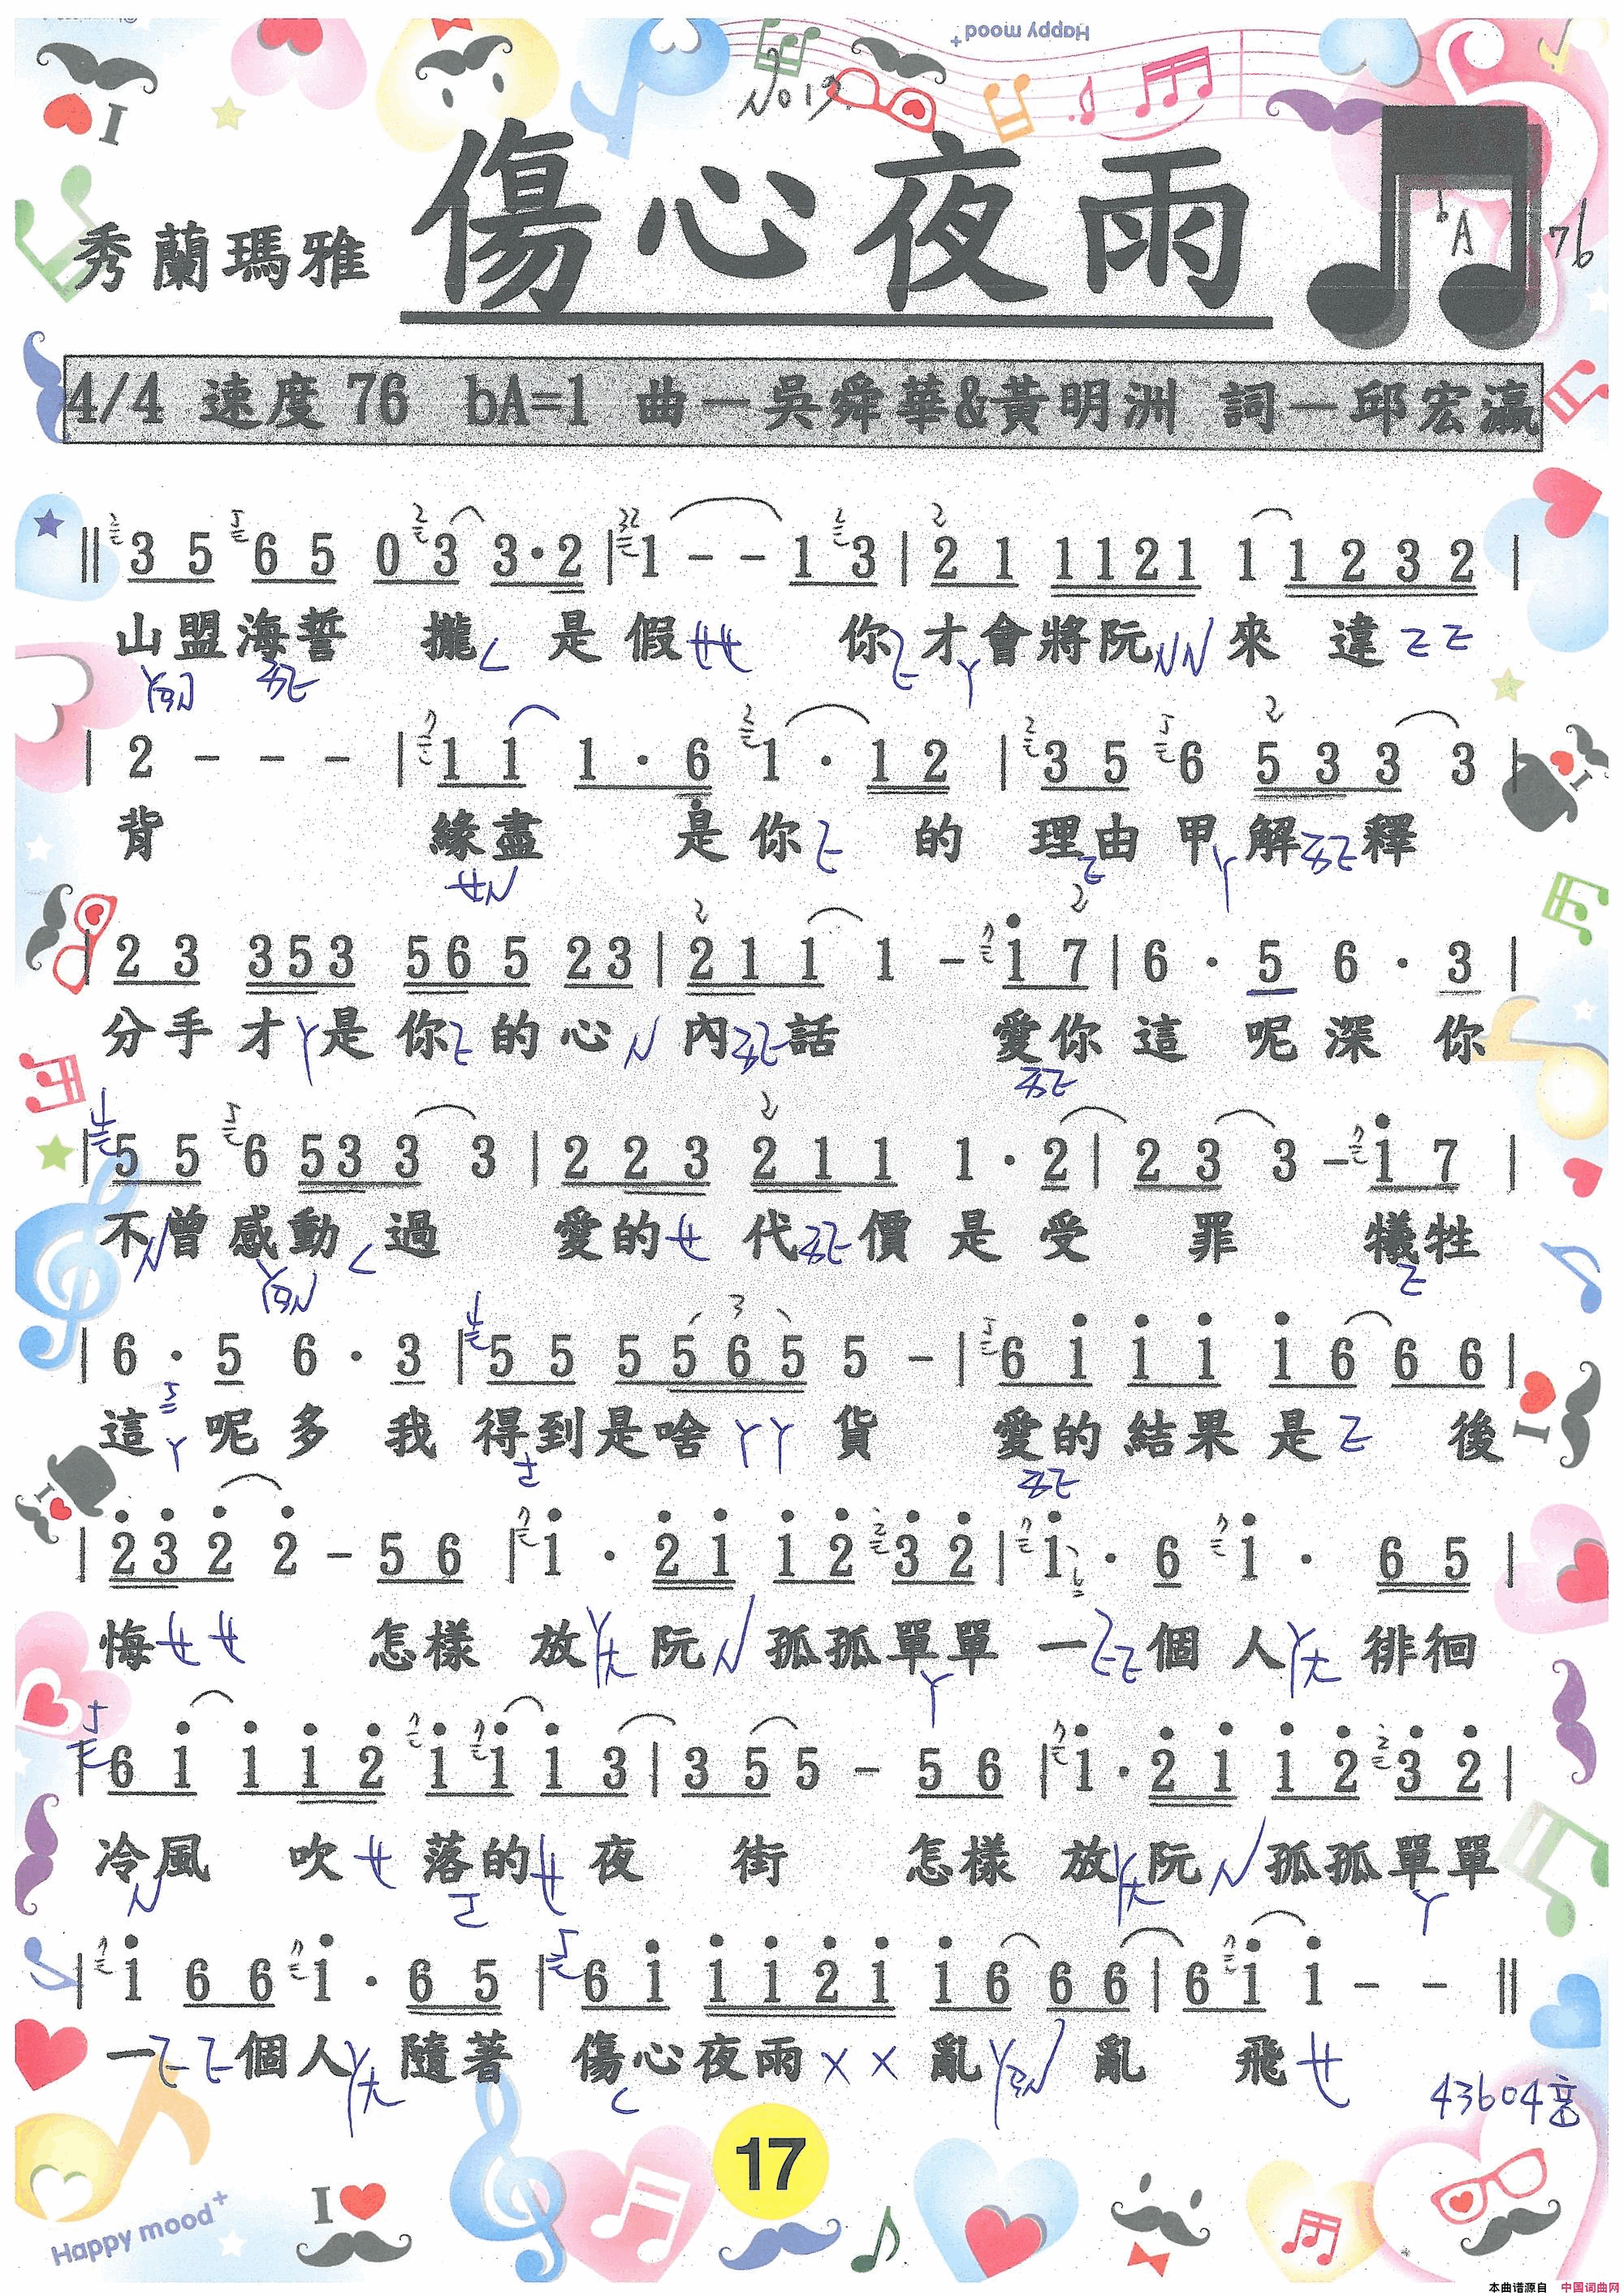 Happy mood+
No 17
傷心夜雨
秀蘭瑪雅
bA 76
4/4 速度 76 bA=1 曲－吳舜華&黃明洲 詞－邱宏瀛
‖ 3 5 6 5 0 3 3·2 | 1 - - 1 3 | 2 1 1121 1 1 2 3 2 |
山盟海誓 攏 是 假 ㄝㄝ 你 才會將阮 來 違
| 2 - - - | 1 1 1 · 6̣ 1 · 1 2 | 3 5 6 5 3 3 3 |
背 緣盡 是 你 的 理由 甲 解 釋
| 2 3 353 56 5 23 | 2 1 1 1 - i 7 | 6 · 5 6 · 3 |
分手 才ㄚ是 你 的心 內 話 愛你 這 呢 深 你
| 5 5 6 53 3 3 | 2 2 3 2 1 1 1 · 2 | 2 3 3 - i 7 |
不曾 感動 過 愛的ㄝ 代 價 是 受 罪 犧牲
| 6 · 5 6 · 3 | 5 5 5 5 6 5 5 - | 6 i i i i 6 6 6 |
這ㄚ呢 多 我 得到是啥ㄚㄚ貨 愛的 結果 是 後
| 2̇ 3̇ 2̇ 2̇ - 5 6 | i · 2̇ i i 2̇ 3̇ 2̇ | i · 6 i · 6 5 |
悔ㄝㄝ 怎樣 放ㄚㄤ 阮 孤孤單單 一 個 人ㄚㄤ 徘徊
| 6 i i i 2̇ i i i 3 | 3 5 5 - 5 6 | i · 2̇ i i 2̇ 3̇ 2̇ |
冷風 吹ㄝ 落的ㄝ夜 街 怎樣 放ㄚㄤ阮 孤孤單單
| i 6 6 i · 6 5 | 6 i i i 2̇ i i 6 6 6 | 6 i i - - ‖
一 個人ㄚㄤ 隨著 傷心夜雨ㄨㄨ 亂 亂 飛ㄝ
43604音
17
I
Happy mood+
本曲谱源自 中国词曲网